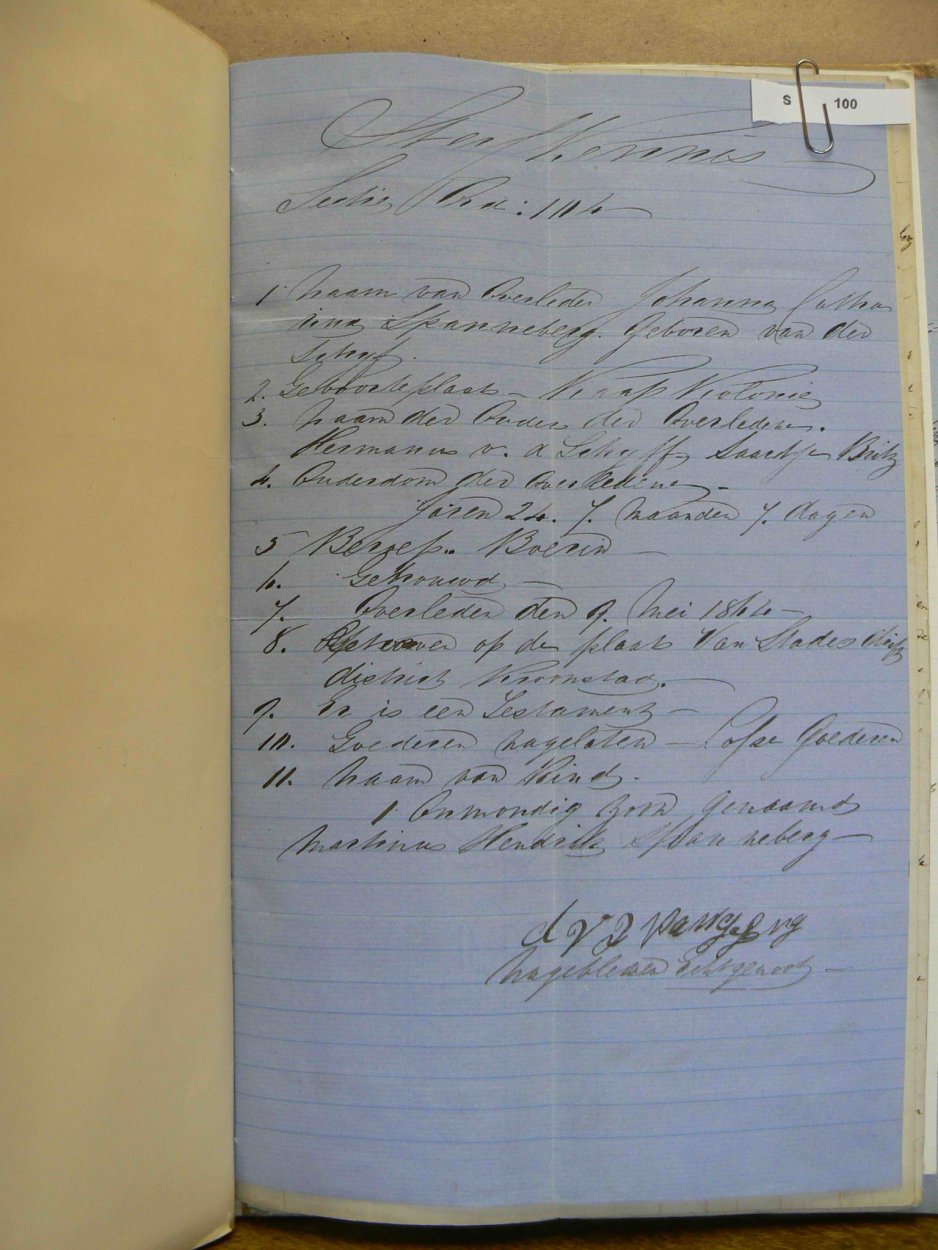 S 100
Sterf Kennis
Sectie Ord: 104
1. Naam van Overleden Johanna Catha
rina Spanneberg. Geboren van der
Schyf.
2. Geboorte plaats – Kaap Kolonie
3. Naam der Ouders der Overledene.
Hermanus v. d Schyff, Saartje Britz
4. Ouderdom der Overledene –
Jaren 24. 7. Maanden 7. dagen
5 Beroep. Boerin –
6. Getrouwd –
7. Overleden den 9. Mei 1864 –
8. op de plaats Van Stades
district Kroonstad. –
9. Er is een Testament –
10. Goederen nagelaten – Losse Goederen
11. Naam van Kind.
1 Onmondig Zoon Genaamd
Martinus Hendrik Spanneberg –
Nagebleven Echtgenoot –